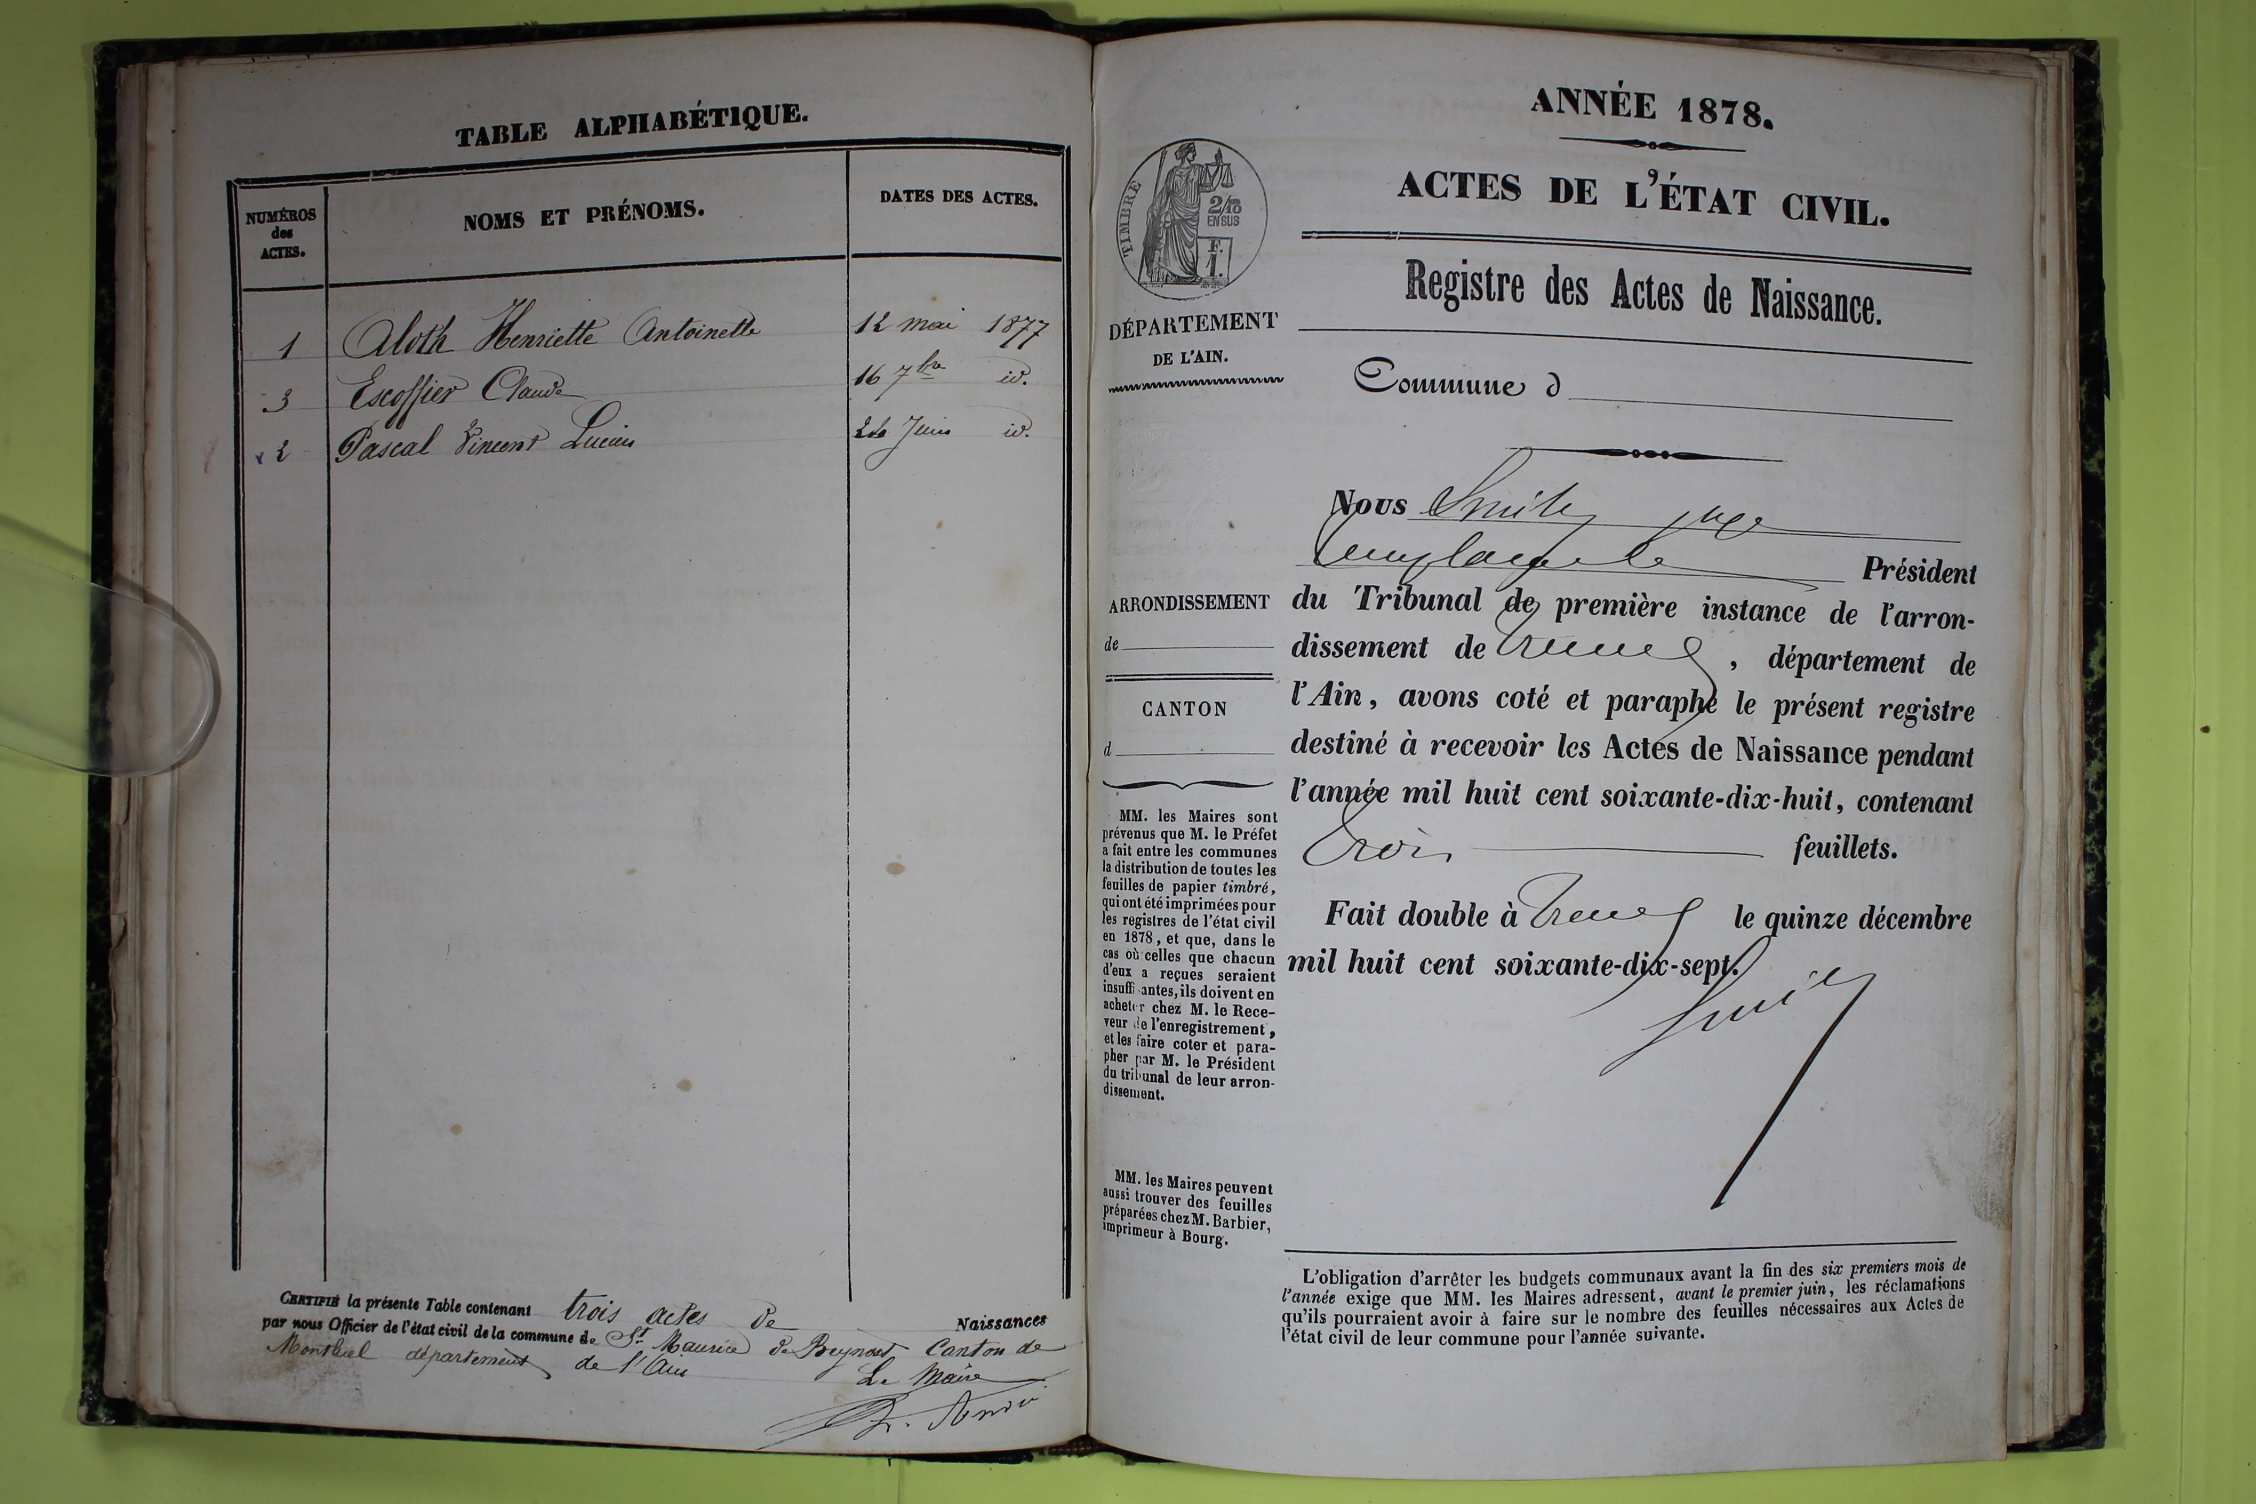 TABLE ALPHABÉTIQUE.
NUMÉROS
des
ACTES.
NOMS ET PRÉNOMS.
DATES DES ACTES.
1 Aloth Henriette Antoinette 12 mai 1877
3 Escoffier Claude 16 7bre id.
2 Pascal Vincent Lucien 24 Juin id.
CERTIFIÉ la présente Table contenant trois actes de Naissances
par nous Officier de l'état civil de la commune de St Maurice de Beynost Canton de
Montluel département de l'Ain
Le Maire
ANNÉE 1878.
ACTES DE L'ÉTAT CIVIL.
Registre des Actes de Naissance.
TIMBRE
2/10
EN SUS
F.
1.
DÉPARTEMENT
DE L'AIN.
Commune d
ARRONDISSEMENT
de
CANTON
d
MM. les Maires sont
prévenus que M. le Préfet
a fait entre les communes
la distribution de toutes les
feuilles de papier timbré,
qui ont été imprimées pour
les registres de l'état civil
en 1878, et que, dans le
cas où celles que chacun
d'eux a reçues seraient
insuffiantes, ils doivent en
acheter chez M. le Rece-
veur de l'enregistrement,
et les faire coter et para-
pher par M. le Président
du tribunal de leur arron-
dissement.
MM. les Maires peuvent
aussi trouver des feuilles
préparées chez M. Barbier,
imprimeur à Bourg.
Nous Smith juge
Président
du Tribunal de première instance de l'arron-
dissement de Trévoux, département de
l'Ain, avons coté et paraphé le présent registre
destiné à recevoir les Actes de Naissance pendant
l'année mil huit cent soixante-dix-huit, contenant
trois feuillets.
Fait double à Trévoux le quinze décembre
mil huit cent soixante-dix-sept.
Smith
L'obligation d'arrêter les budgets communaux avant la fin des six premiers mois de
l'année exige que MM. les Maires adressent, avant le premier juin, les réclamations
qu'ils pourraient avoir à faire sur le nombre des feuilles nécessaires aux Actes de
l'état civil de leur commune pour l'année suivante.